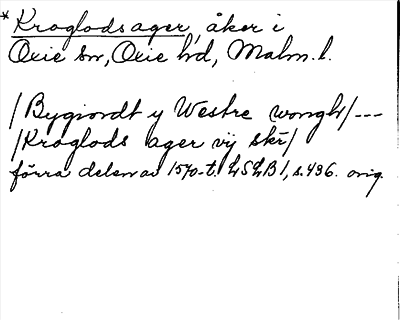 * Kroglodsager, åker i
Oxie sn, Oxie hd, Malm. l.
/Bygiordt y Westre wongh/---
/Kroglods ager vij skr/
förra delen av 1570-t. LSLB 1, s. 496. orig.